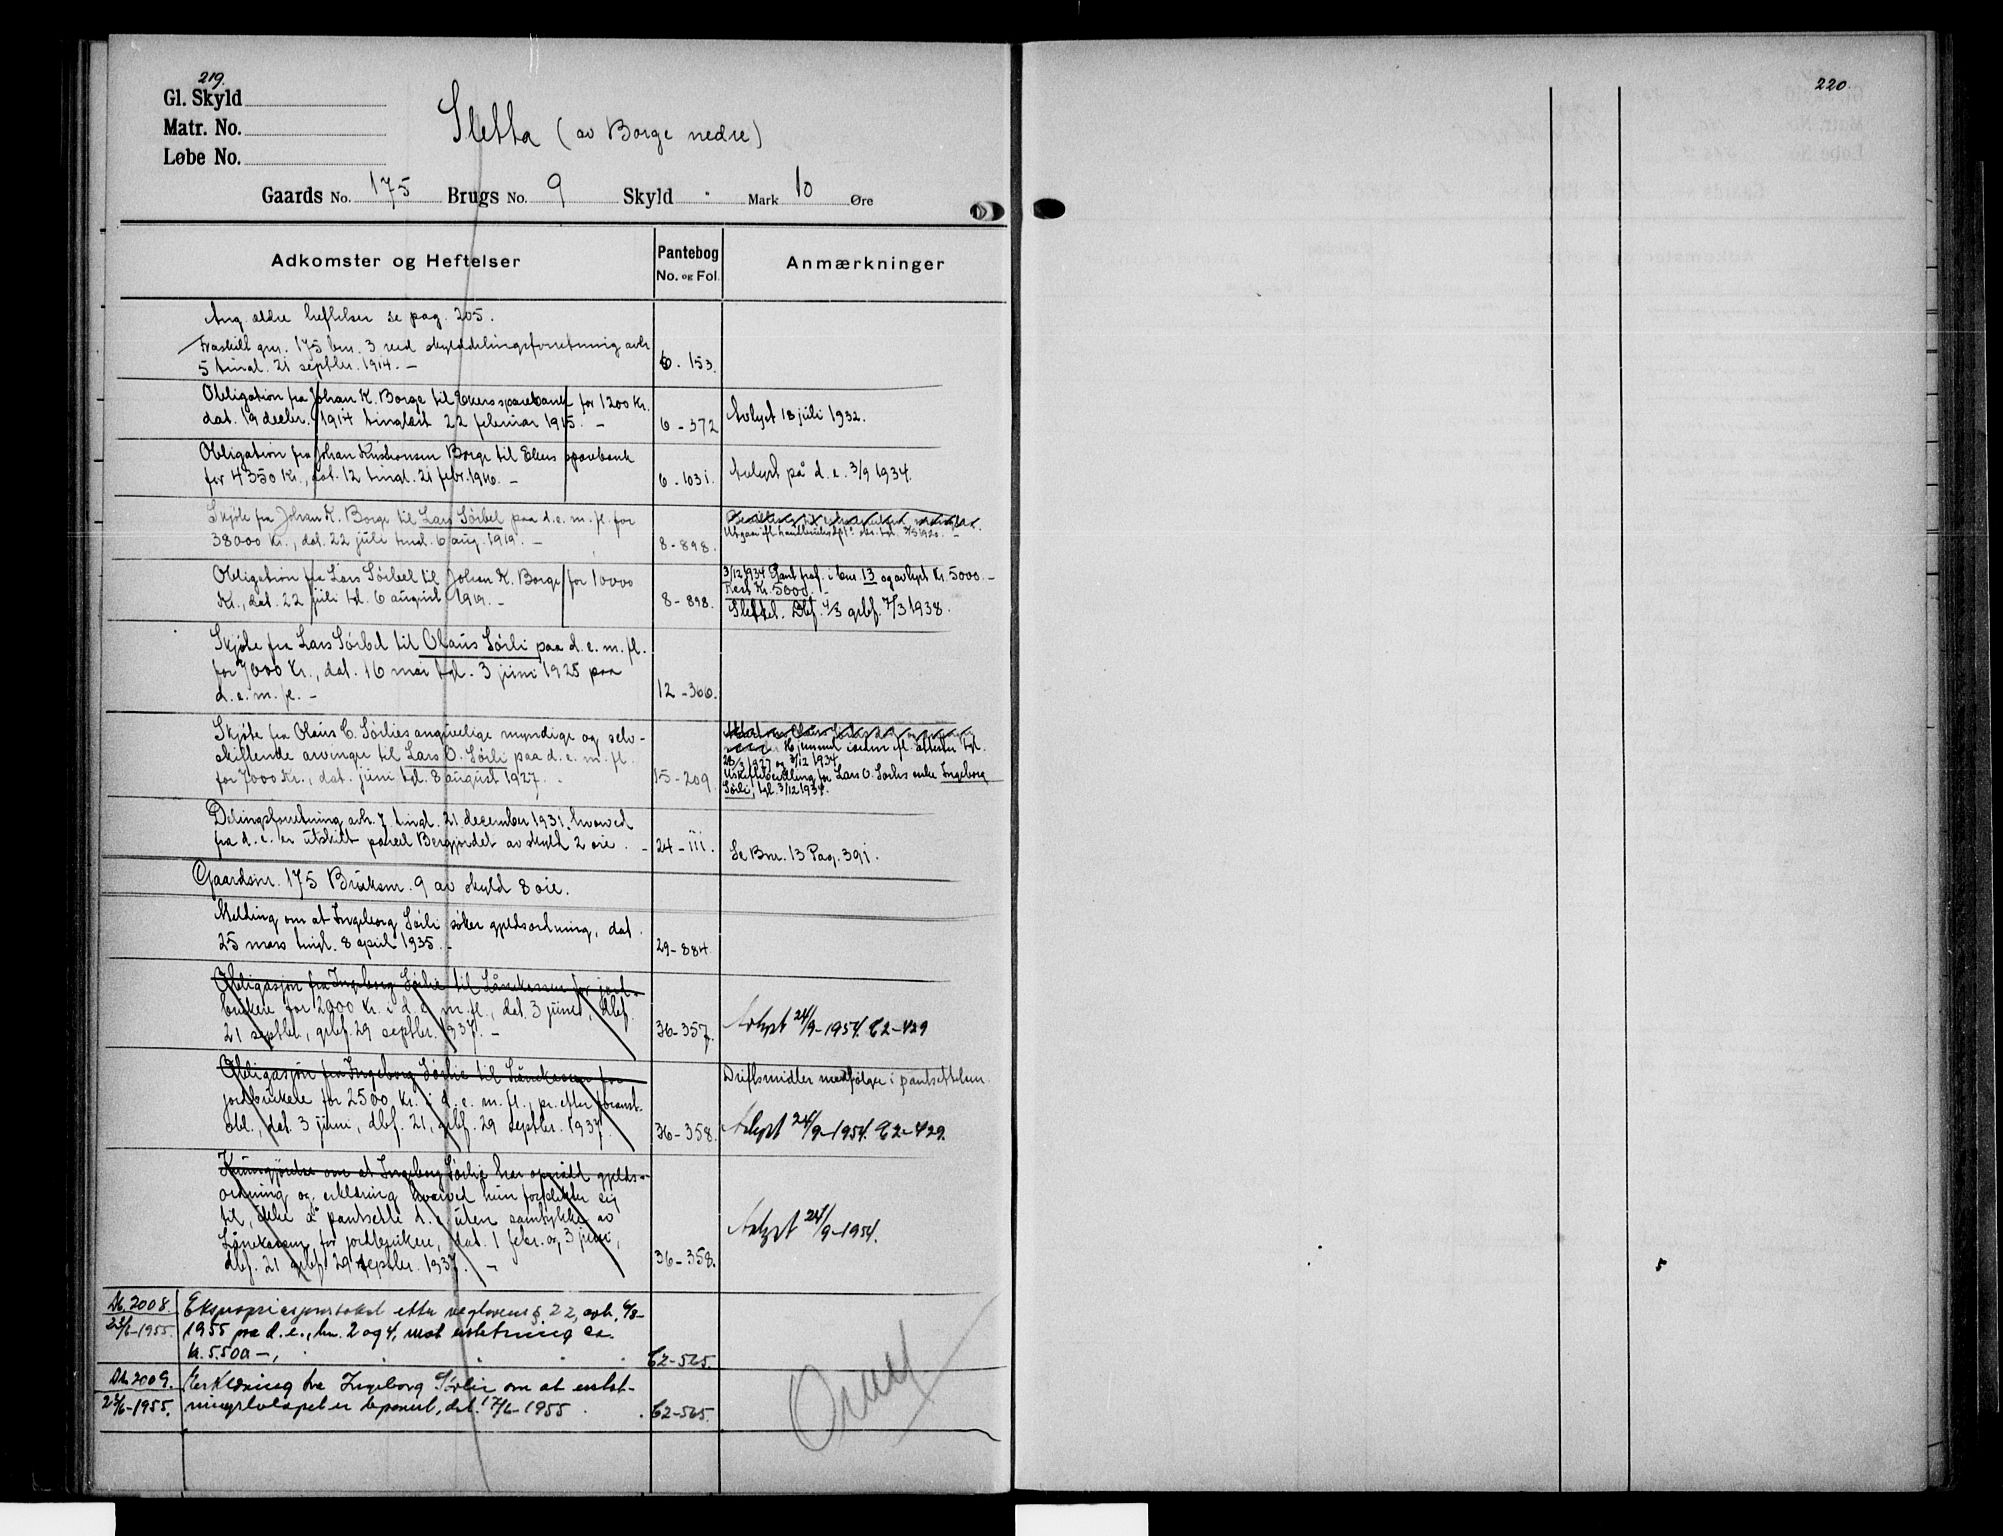 219.
Gl. Skyld
Matr. No.
Løbe No.
Sletta (av Borge nedre)
Gaards No. 175 Brugs No. 9 Skyld - Mark 10 Øre
Adkomster og Heftelser
Pantebog
No. og Fol.
Anmærkninger
Ang. ældre heftelser se pag. 205.
Fraskilt gnr. 175 bnr. 3 ved skylddelingsforretning avh.
5 tingl. 21 septbr. 1914. -
6. 153.
Obligation fra Johan K. Borge til Ekers sparebank for 1200 Kr.
dat. 19 decbr. 1914 tinglæst 22 februar 1915. -
6 - 372
Avlyst 18 juli 1932.
Obligation fra Johan Kristiansen Borge til Ekers sparebank
for 4350 Kr., dat. 12 tingl. 21 febr. 1916. -
6 - 1031.
Avlyst på d. e. 3/9 1934.
Skjøte fra Johan K. Borge til Lars Sørbel paa d. e. m. fl. for
38000 Kr., dat. 22 juli tingl. 6 aug. 1919. -
8 - 898.
Obligation fra Lars Sørbel til Johan K. Borge for 10000
Kr., dat. 22 juli tgl. 6 august 1919. -
8 - 898.
3/12 1934 Pant fraf. i bnr 13 og avlyst Kr. 5000. -
Rest Kr. 5000. -
Slettet. Dbf. 4/3 grbf. 7/3 1938.
Skjøte fra Lars Sørbel til Olaus Sørli paa d. e. m. fl.
for 7000 Kr., dat. 16 mai tgl. 3 juni 1925 paa
d. e. m. fl. -
12 - 366.
Skjøte fra Olaus C. Sørlies angivelige myndige og selv-
skiftende arvinger til Lars O. Sørli paa d. e. m. fl.
for 7000 Kr., dat. juni tgl. 8 august 1927. -
15 - 209.
Hjemmel i orden efl. attester tgl.
1927 og 3/12 1934.
Uskiftebevilling for Lars O. Sørlis enke Ingeborg
Sørli, tgl. 3/12 1934.
Delingsforretning avh. 7 tingl. 21 december 1931, hvorved
fra d. e. er utskilt parcel Bergjordet av skyld 2 øre. -
24 - 111.
Se Bnr. 13 Pag. 391.
Gaardsnr. 175 Bruksnr. 9 av skyld 8 øre.
Melding om at Ingeborg Sørli søker gjeldsordning, dat.
25 mars tingl. 8 april 1935. -
29 - 884.
Obligasjon fra Ingeborg Sørlie til Lånekassen for jord-
brukere for 2000 Kr. i d. e. m. fl., dat. 3 juni, dbf.
21 septbr., grbf. 29 septbr. 1937. -
36 - 357.
Avlyst 24/9-1954. C2-429
Obligasjon fra Ingeborg Sørlie til Lånekassen for
jordbrukere for 2500 Kr. i d. e. m. fl., pr. efter foranst.
obl., dat. 3 juni, dbf. 21, grbf. 29 septbr. 1937.
36 - 358.
Driftsmidler medfølger i pantsettelsen.
Avlyst 24/9-1954. C2-429.
Kunngjørelse om at Ingeborg Sørlie har opnådd gjelds-
ordning og erklæring hvorved hun forplikter sig
til, ikke å pantsette d. e. uten samtykke av
Lånekassen for jordbrukere, dat. 1 febr. og 3 juni,
dbf. 21 grbf. 29 septbr. 1937. -
36 - 358.
Avlyst 24/9-1954.
Db. 2008. Ekspropriasjonstakst etter veglovens § 22, avh.
-1955. 1955 på d. e., bnr. 2 og 4, mot erstatning
kr. 5.500 -,
C2-565.
Db. 2009. Erklæring fra Ingeborg Sørlie om at erstat-
-1955. ningsbeløpet er deponert, dat. 17/6-1955
C2-565.
220.